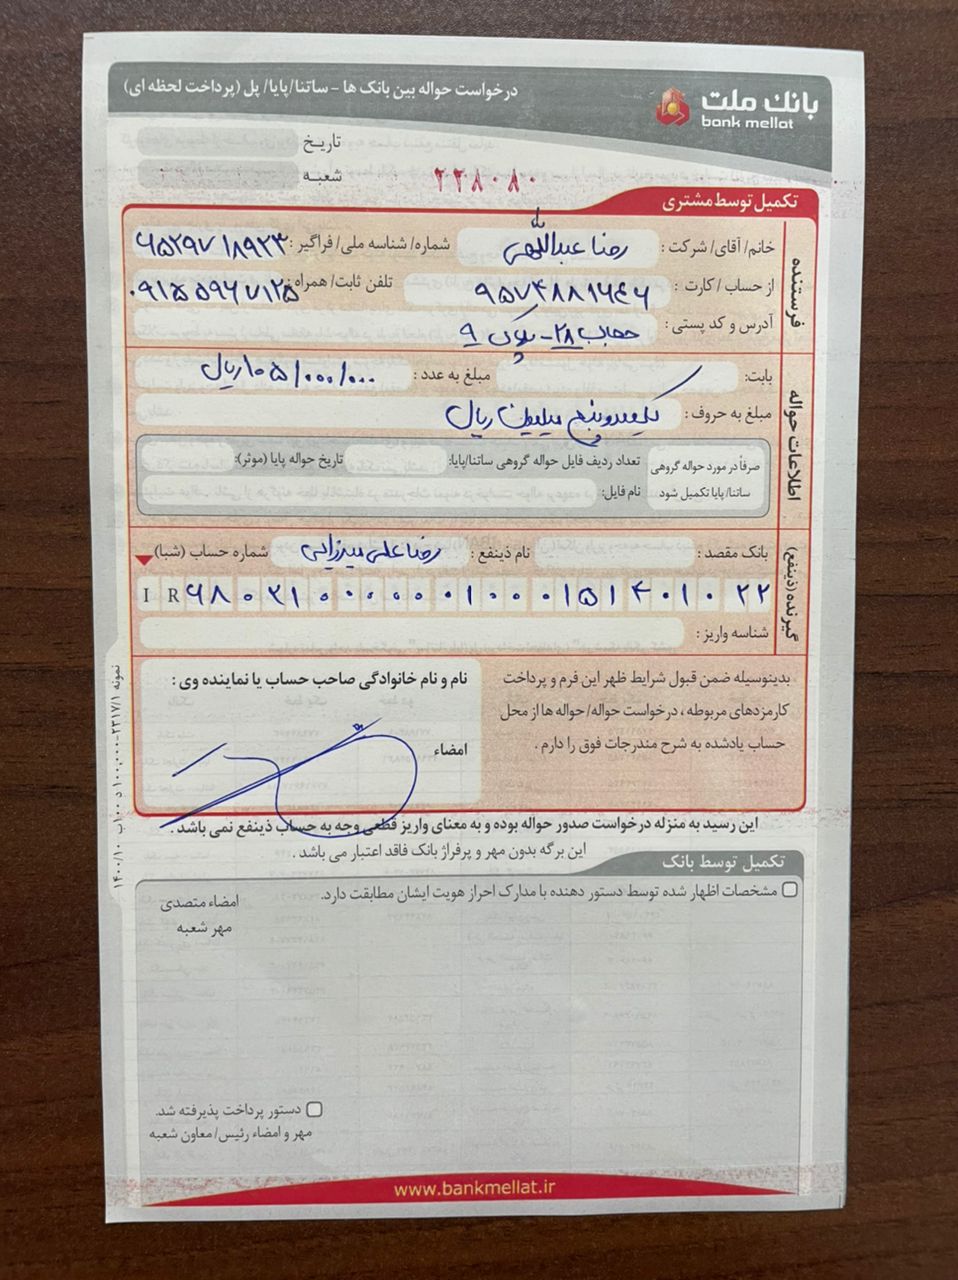 درخواست حواله بین بانک ها - ساتنا/پایا/ پل (پرداخت لحظه ای)
بانک ملت
bank mellat
تاریخ
شعبه
۲۲۸۰۸۰
تکمیل توسط مشتری
فرستنده
خانم/ آقای/ شرکت : رضا عبداللهی شماره/ شناسه ملی/ فراگیر : ۶۵۲۹۷۱۸۹۲۳
از حساب / کارت : ۹۵۷۴۸۸۱۶۴۶ تلفن ثابت/ همراه : ۰۹۱۵۵۹۶۷۱۲۵
آدرس و کد پستی : حجاب ۲۸- پلاک ۹
اطلاعات حواله
بابت: مبلغ به عدد : ۱۰۵/۰۰۰/۰۰۰ ریال
مبلغ به حروف : یکصدوپنج میلیون ریال
صرفاً در مورد حواله گروهی ساتنا/پایا تکمیل شود
تعداد ردیف فایل حواله گروهی ساتنا/پایا: تاریخ حواله پایا (موثر):
نام فایل:
گیرنده (ذینفع)
بانک مقصد : نام ذینفع : رضا علی میرزایی شماره حساب (شبا)
IR ۶۸۰۲۱۰۰۰۰۰۰۱۰۰۰۱۵۱۴۰۱۰۲۲
شناسه واریز :
بدینوسیله ضمن قبول شرایط ظهر این فرم و پرداخت
کارمزدهای مربوطه ، درخواست حواله/ حواله ها از محل
حساب یادشده به شرح مندرجات فوق را دارم .
نام و نام خانوادگی صاحب حساب یا نماینده وی :
امضاء
این رسید به منزله درخواست صدور حواله بوده و به معنای واریز قطعی وجه به حساب ذینفع نمی باشد .
این برگه بدون مهر و پرفراژ بانک فاقد اعتبار می باشد .
تکمیل توسط بانک
مشخصات اظهار شده توسط دستور دهنده با مدارک احراز هویت ایشان مطابقت دارد.
امضاء متصدی
مهر شعبه
دستور پرداخت پذیرفته شد.
مهر و امضاء رئیس/ معاون شعبه
www.bankmellat.ir
نمونه ۲۳۱۷/۱-۱۰۰,۰۰۰ د ۱۰۰ ب ۱۴۰۰/۱۰